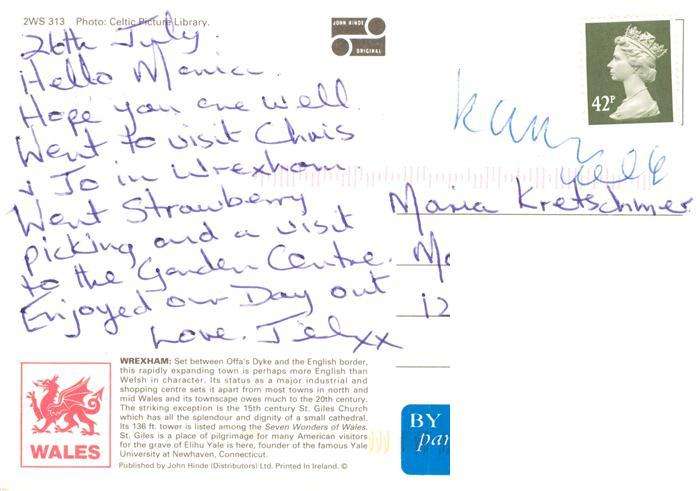 2WS 313 Photo: Celtic Picture Library.
JOHN HINDE
ORIGINAL
42P
26th July.
Hello Maria.
Hope you are well.
Went to visit Chris
& Jo in Wrexham.
Went Strawberry
picking and a visit
to the Garden Centre.
Enjoyed our Day out
Love.
xx
Maria Kretschmer
12
WREXHAM: Set between Offa's Dyke and the English border,
this rapidly expanding town is perhaps more English than
Welsh in character. Its status as a major industrial and
shopping centre sets it apart from most towns in north and
mid Wales and its townscape owes much to the 20th century.
The striking exception is the 15th century St. Giles Church
which has all the splendour and dignity of a small cathedral.
Its 136 ft. tower is listed among the Seven Wonders of Wales.
St. Giles is a place of pilgrimage for many American visitors
for the grave of Elihu Yale is here, founder of the famous Yale
University at Newhaven, Connecticut.
Published by John Hinde (Distributors) Ltd. Printed in Ireland. ©
WALES
BY
par